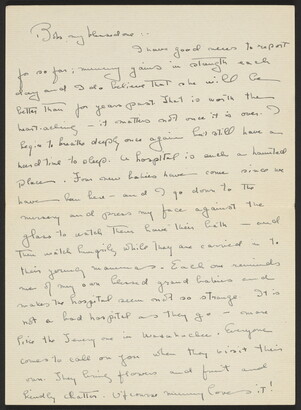 my Theodore:
I have good news to report
so far; mummy gains in strength each
day and I do believe that she will be
better than for years past. That is worth the
heart-aching - it matters not once it is over. I
begin to breathe deeply once again but still have a
hard time to sleep. A hospital is such a haunted
place. Four new babies have come since we
have been here - and I go down to the
nursery and press my face against the
glass to watch them have their bath - and
then watch hungrily while they are carried in to
their young mammas. Each one reminds
me of my own blessed grand babies and
makes the hospital seem not so strange. It is
not a bad hospital as they go - more
like the one in Everyone
comes to call on you when they visit their
own. They bring flowers and fruit and
kindly chatter. Of course mummy loves it!